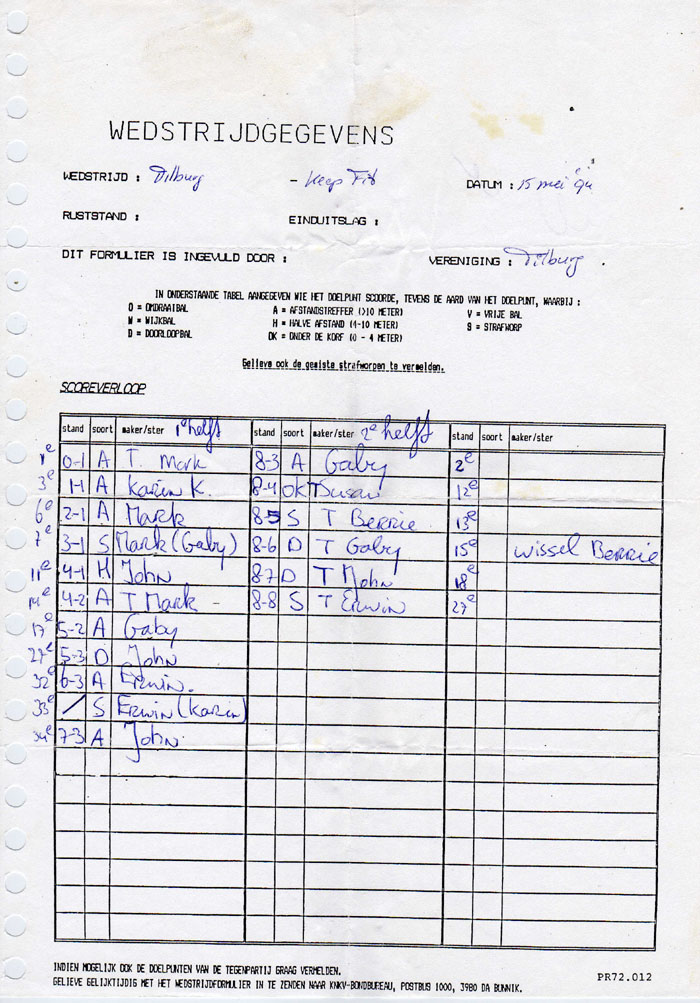 WEDSTRIJDGEGEVENS
WEDSTRIJD : Tilburg - Keep Fit DATUM : 15 mei '94
RUSTSTAND : EINDUITSLAG :
DIT FORMULIER IS INGEVULD DOOR : VERENIGING : Tilburg .
IN ONDERSTAANDE TABEL AANGEGEVEN WIE HET DOELPUNT SCOORDE, TEVENS DE AARD VAN HET DOELPUNT, WAARBIJ :
O = OMDRAAIBAL A = AFSTANDSTREFFER (>10 METER) V = VRIJE BAL
W = WIJKBAL H = HALVE AFSTAND (4-10 METER) S = STRAFWORP
D = DOORLOOPBAL OK = ONDER DE KORF (0 - 4 METER)
Gelieve ook de gemiste strafworpen te vermelden.
SCOREVERLOOP
stand soort maker/ster 1e helft stand soort maker/ster 2e helft stand soort maker/ster
1e 0-1 A T. Mark 8-3 A Gaby 2e
3e 1-1 A Karin K. 8-4 OK T Susan 12e
6e 2-1 A Mark 8-5 S T Berrie 13e
7e 3-1 S Mark (Gaby) 8-6 D T Gaby 15e wissel Berrie
11e 4-1 H John 8-7 D T John 18e
14e 4-2 A T Mark - 8-8 S T Erwin 27e
17e 5-2 A Gaby
27e 5-3 D John
32e 6-3 A Erwin.
33e / S Erwin (Karin)
34e 7-3 A John
INDIEN MOGELIJK OOK DE DOELPUNTEN VAN DE TEGENPARTIJ GRAAG VERMELDEN.
GELIEVE GELIJKTIJDIG MET HET WEDSTRIJDFORMULIER IN TE ZENDEN NAAR KNKV-BONDBUREAU, POSTBUS 1000, 3980 DA BUNNIK.
PR72.012